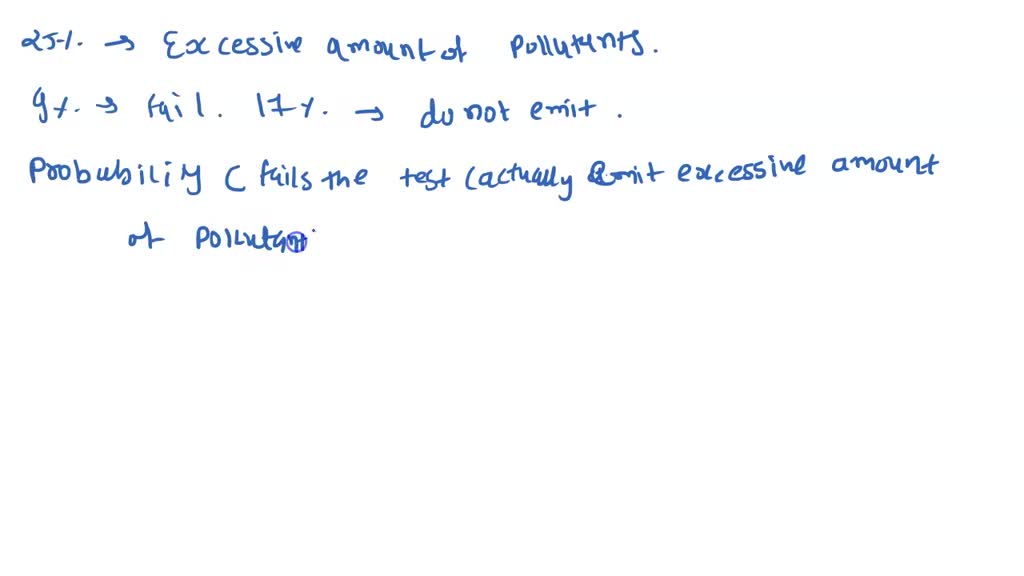 25%. → Excessive amount of pollutants.
9%. → fail. 17%. → do not emit.
Probability ( fails the test (actually emit excessive amount
of pollutan